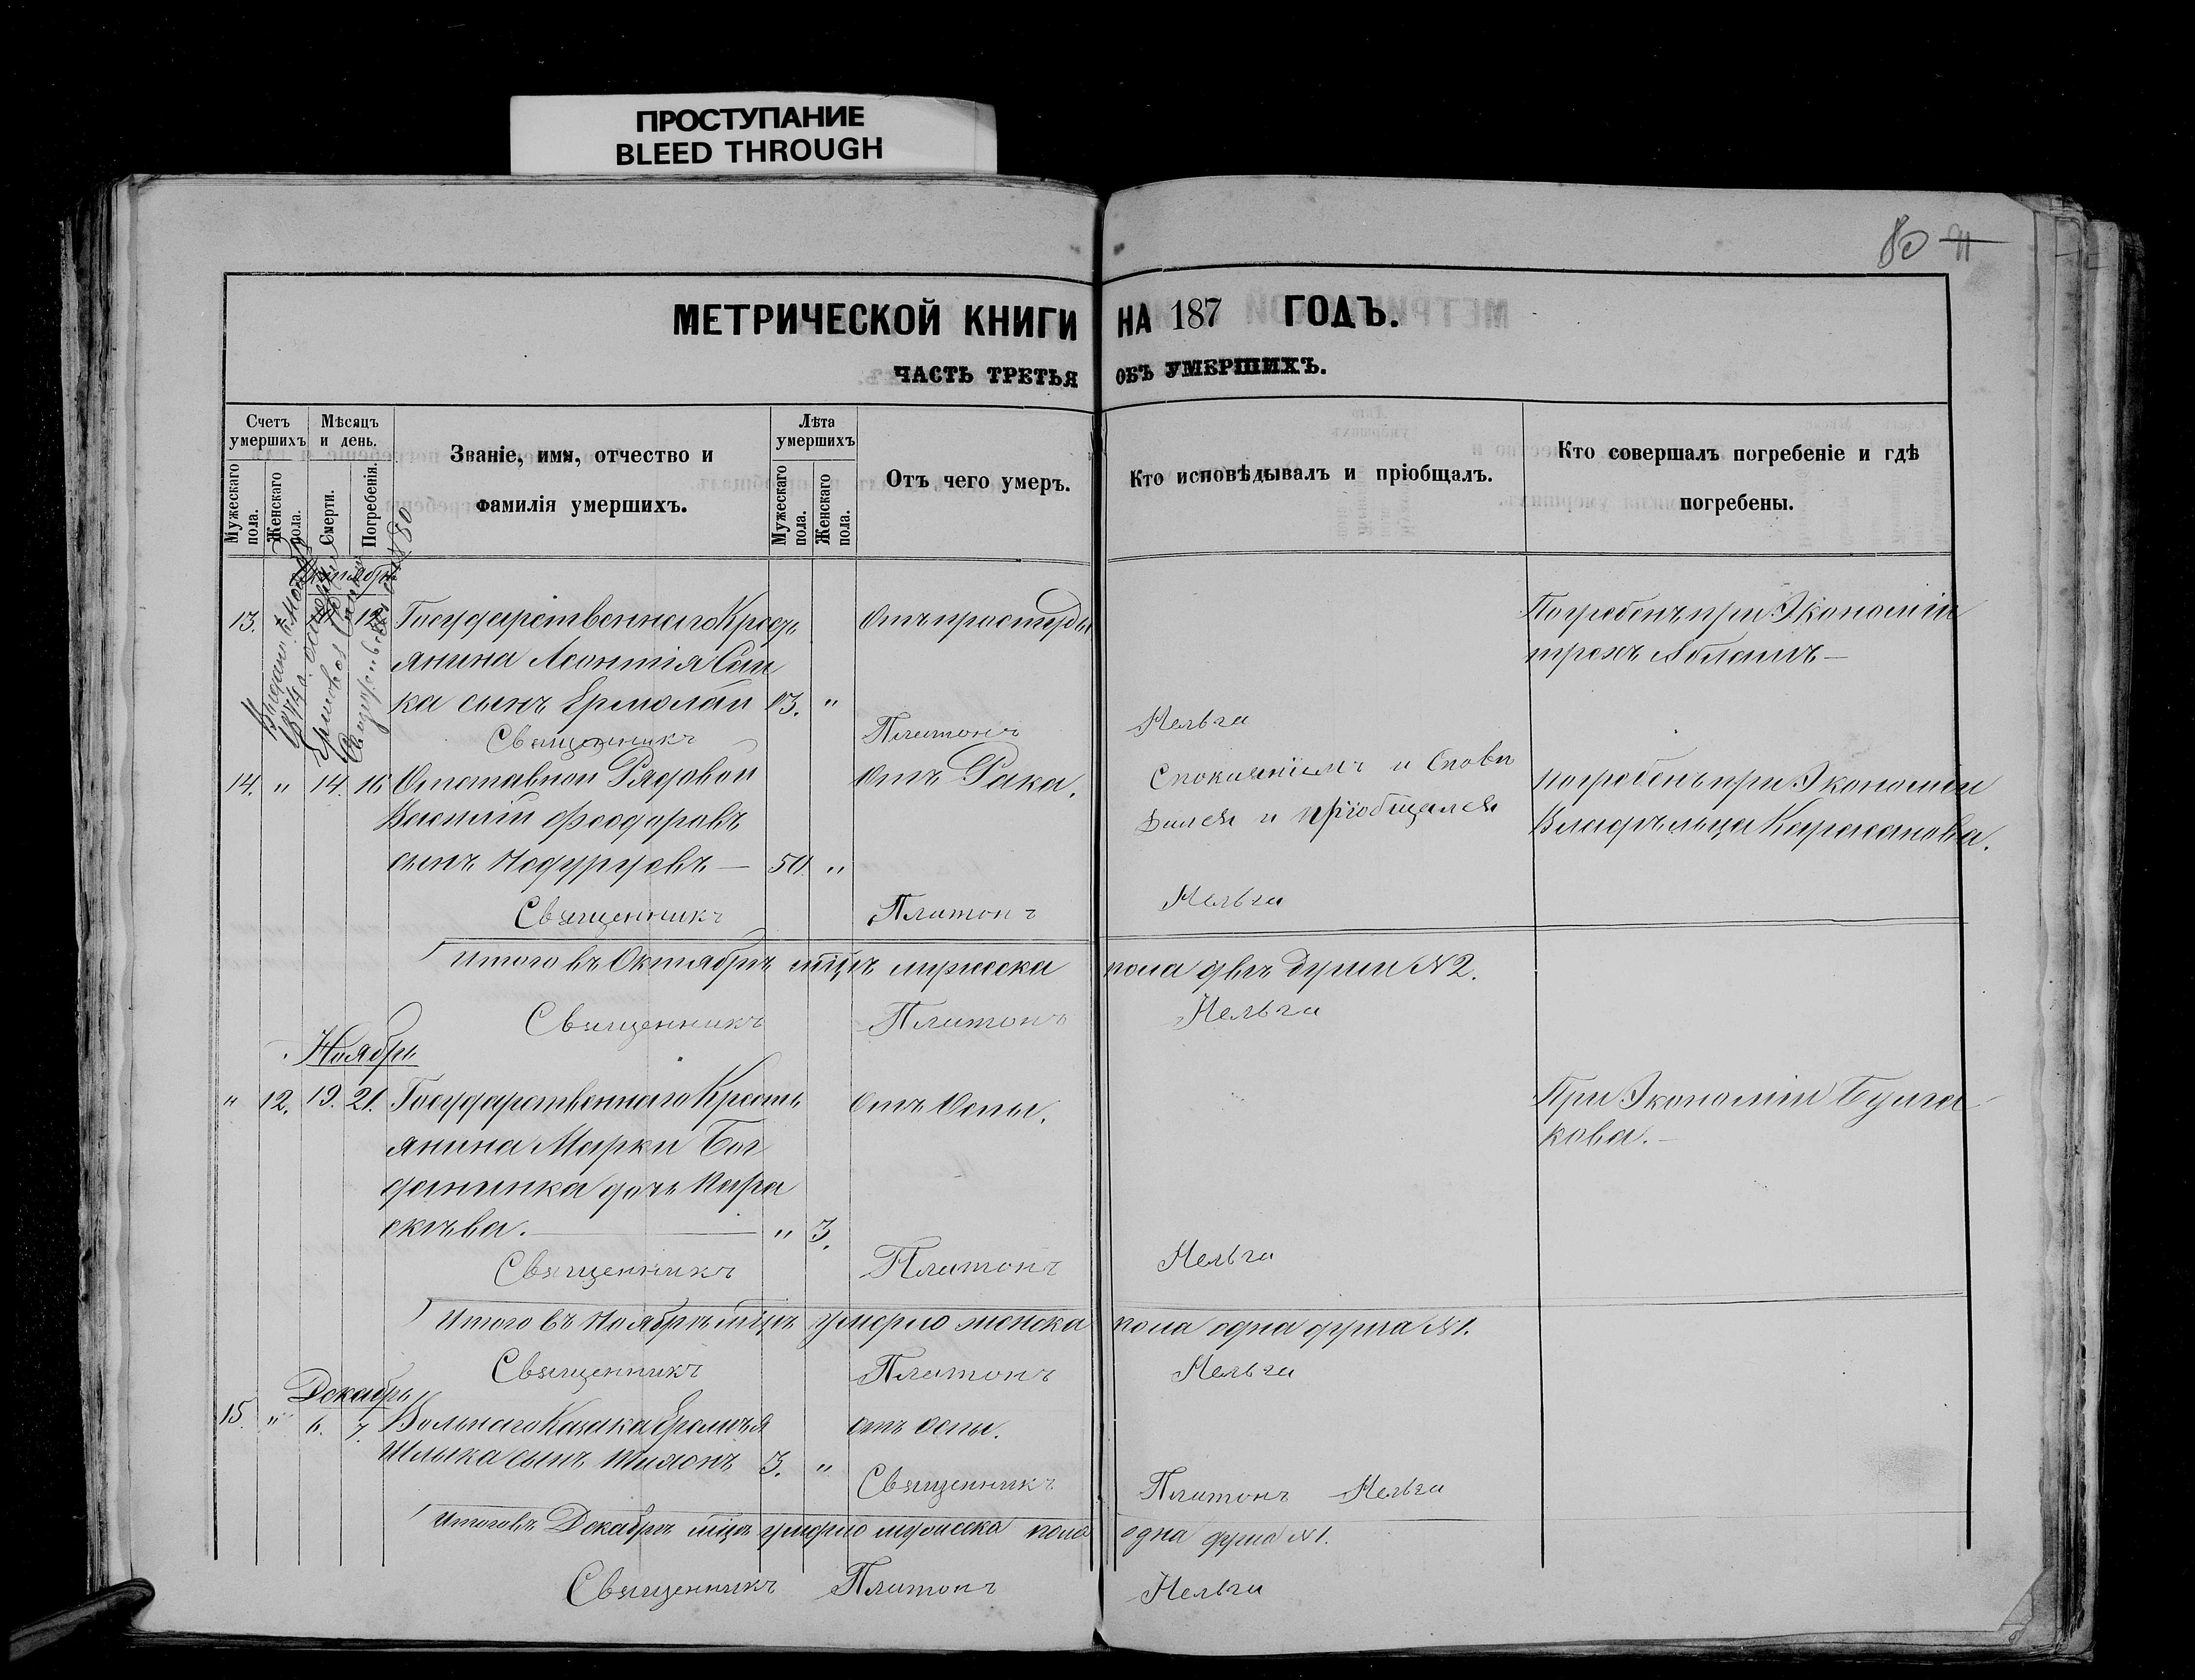 ПРОСТУПАНИЕ
BLEED THROUGH
80 71
МЕТРИЧЕСКОЙ КНИГИ НА 187 ГОДЪ.
ЧАСТЬ ТРЕТЬЯ ОБЪ УМЕРШИХЪ.
Счетъ умершихъ
Мужескаго пола.
Женскаго пола.
Мѣсяцъ и день.
Смерти.
Погребенія.
Званіе, имя, отчество и
фамилія умершихъ.
Лѣта умершихъ
Мужескаго пола.
Женскаго пола.
Отъ чего умеръ.
Кто исповѣдывалъ и пріобщалъ.
Кто совершалъ погребеніе и гдѣ
погребены.
Октябрь
13. 12 Государственнаго Кресть
янина Леонтія
ка сынъ Ермолай 13. "
Отъ простуды
Погребенъ при Экономіи
Священникъ Платонъ Нельга
14. " 14. 16 Отставной Рядовой
Василій Феодоровъ
сынъ 50. "
Отъ Рака.
Спокаяніемъ и Спови
дался и пріобщался
погребенъ при Экономіи
Владѣльца
Священникъ Платонъ Нельга
Итого въ Октябрѣ мцѣ мужеска пола двѣ души №2.
Священникъ Платонъ Нельга
Ноябрь
" 12. 19. 21. Государственнаго Кресть
янина Марки Бог
данинка дочь Пара
скѣва. " 3.
Отъ Оспы.
При Экономіи Булга
кова.
Священникъ Платонъ Нельга
Итого въ Ноябрѣ мцѣ умерло женска пола одна душа №1.
Священникъ Платонъ Нельга
Декабрь
15. " 6. 7. Вольнаго Казака Еремѣя
Шлыка сынъ 3. "
отъ оспы.
Священникъ Платонъ Нельга
Итого въ Декабрѣ мцѣ умерло мужеска пола одна душа №1.
Священникъ Платонъ Нельга